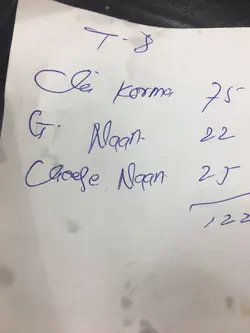 T-8
Chi Korma 75
G. Naan 22
Cheese Naan 25
122